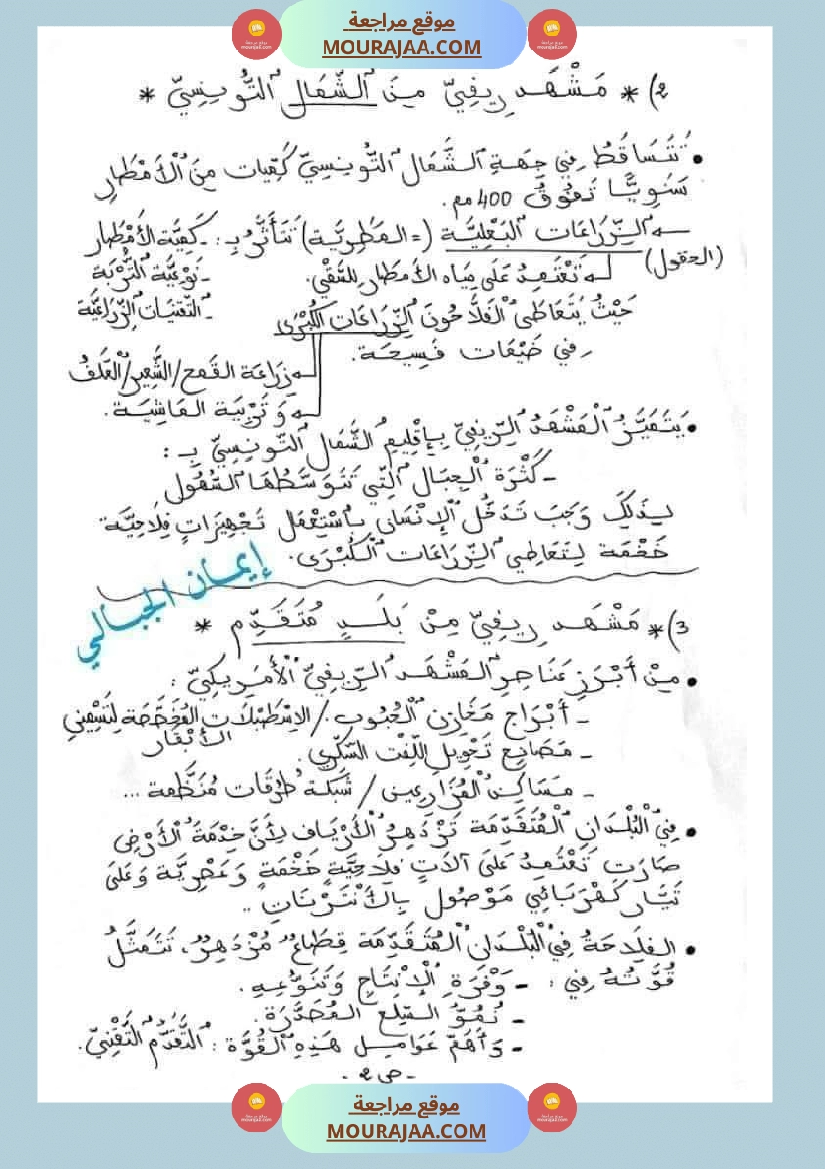 موقع مراجعة
MOURAJAA.COM
2) * مَشْهَد رِيفِيّ مِنَ الشَّمَالِ التُّونِسِيّ *
• تَتَسَاقَطُ فِي جِهَةِ الشَّمَالِ التُّونِسِيِّ كَمِّيَات مِنَ الْأَمْطَارِ
سَنَوِيًّا تَفُوقُ 400 مم.
الزِّرَاعَات البَعْلِيَّة (= المَطَرِيَّة) تَتَأَثَّرُ بِـ: - كَمِيَّة الأَمْطَار
(الحقول)
تَعْتَمِدُ عَلَى مِيَاه الأمطَار لِلسَّقْي.
- نَوْعِيَّة التُّرْبَة
- التِّقْنِيَات الزِّرَاعِيَّة
حَيْثُ يَتَعَاطَى الْفَلَّاحُونَ الزِّرَاعَات الْكُبْرَى
فِي ضَيْعَات فَسِيحَة.
زِرَاعَة القَمح/الشَّعِير/العَلَفُ
وَ تَرْبِيَة المَاشِيَة.
• يَتَمَيَّزُ الْمَشْهَدُ الرِّيفِيّ بِإِقْلِيمِ الشَّمَالِ التُّونِسِيِّ بِـ :
- كَثْرَة الْجِبَال الَّتِي تَتَوَسَّطُهَا السُّهُول
لِذَلِكَ وَجَبَ تَدَخُّل الْإِنْسَانِ بِاسْتِعْمَالِ تَجْهِيزَاتٍ فِلَاحِيَّة
ضَخْمَة لِتَعَاطِي الزِّرَاعَات الْكُبْرَى.
إيمان الجبالي
3) * مَشْهَد رِيفِيّ مِنْ بَلَدٍ مُتَقَدِّمٍ *
• مِنْ أَبْرَزِ عَنَاصِرِ الْمَشْهَد الرِّيفِيّ الْأَمْرِيكِيّ :
- أَبْرَاج مَخَازِن الْحُبُوب / الاِسْطَبْلَات المُخَصَّصَة لِتَسْمِينِ
الأَبْقَار
- مَصَانِع تَحْوِيل اللِّفْت السُّكَّرِي.
- مَسَاكِن الْمُزَارِعِين / شَبَكَة طُرُقَات مُنَظَّمَة ...
• فِي الْبُلْدَانِ الْمُتَقَدِّمَة تَزْدَهِرُ الْأَرْيَاف لِأَنَّ خِدْمَةَ الْأَرْضِ
صَارَت تَعْتَمِدُ عَلَى آلَاتٍ فِلَاحِيَّةٍ ضَخْمَةٍ وَعَصْرِيَّة وَعَلَى
تَيَّار كَهْرَبَائِي مَوْصُول بِالأَنْتَرْنَات ..
• الفِلَاحَةُ فِي الْبُلْدَانِ الْمُتَقَدِّمَة قِطَاعٌ مُزْدَهِرٌ، تَتَمَثَّلُ
قُوَّتُهُ فِي : - وَفْرَة الْإِنْتَاجِ وَتَنَوُّعِهِ.
- نُمُوّ السِّلَع المُصَدَّرَة.
- وَأَهَمّ عَوَامِل هَذِهِ الْقُوَّة : التَّقَدُّم التَّقْنِيّ.
- ص 2 -
موقع مراجعة
MOURAJAA.COM